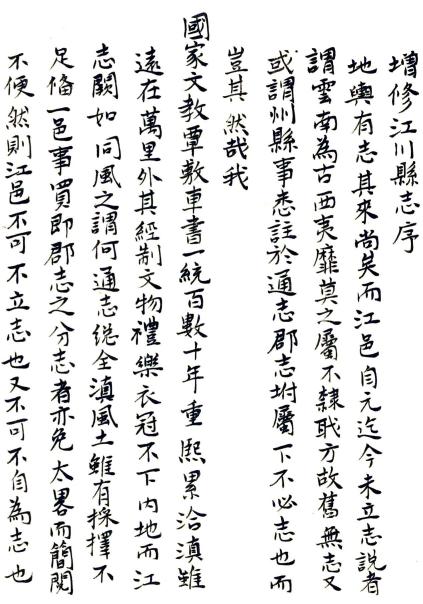 增修江川縣志序
地輿有志其來尚矣而江邑自元迄今未立志說者
謂雲南為古西夷靡莫之屬不隸職方故舊無志又
或謂州縣事悉註於通志郡志坿屬下不必志也而
豈其然哉我
國家文教覃敷車書一統百數十年重熙累洽滇雖
遠在萬里外其經制文物禮樂衣冠不下內地而江
志闕如同風之謂何通志総全滇風土雖有採擇不
足俻一邑事買即郡志之分志者亦免太畧而簡閱
不便然則江邑不可不立志也又不可不自為志也